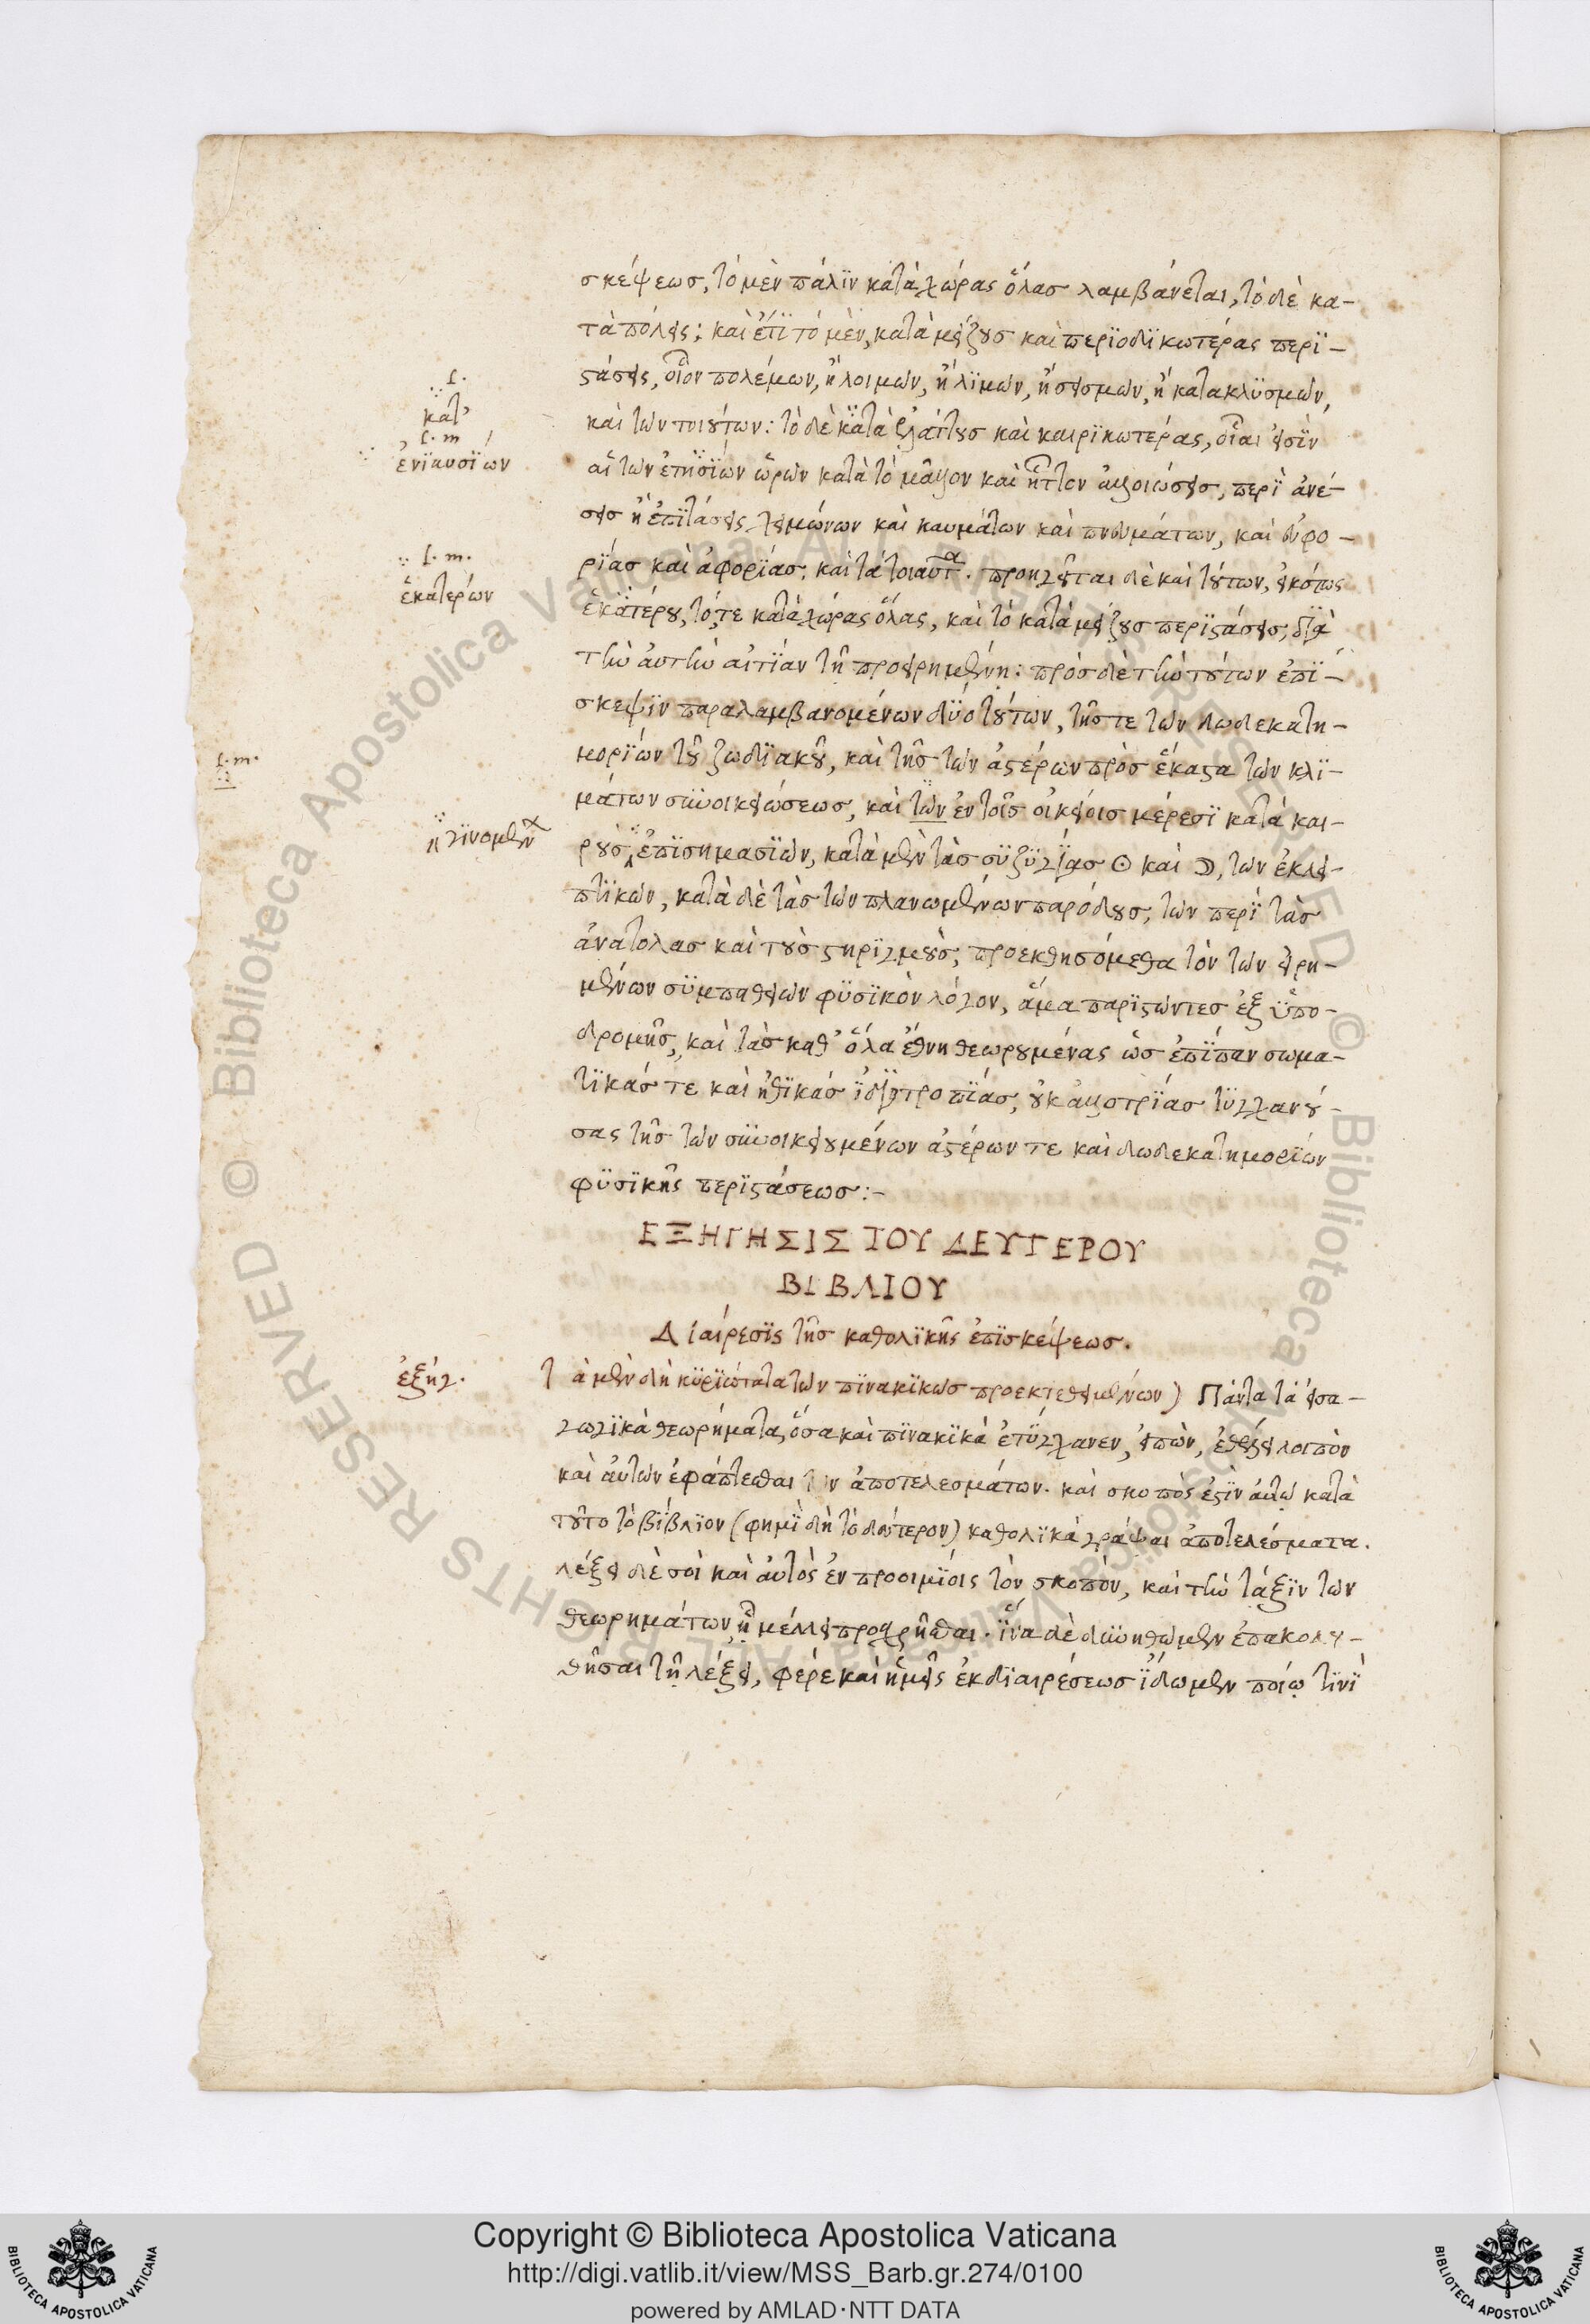 σκέψεως, τὸ μὲν πάλϊν κατὰ χώρας ὅλας λαμβάνεται, τὸ δὲ κα-
τὰ πόλεις: καὶ ἔτϊ τὸ μὲν, κατὰ μείζους καὶ περϊοδϊκωτέρας περϊ-
στάσεις, οἷον πολέμων, ἢ λοιμῶν, ἢ λϊμῶν, ἢ σεισμῶν, ἢ κατακλϋσμῶν,
καὶ τῶν τοιούτων: τὸ δὲ κατὰ ἐλάττους καὶ καιρϊκωτέρας, οἷαι εἰσϊν
αἱ τῶν ἐτησϊων ὡρῶν κατὰ τὸ μᾶλλον καὶ ἧττον ἀλλοιώσεις, περϊ ἀνέ-
σεις ἢ ἐπϊτάσεις χειμώνων καὶ καυμάτων καὶ πνευμάτων, καὶ εὐφο-
ρϊας καὶ ἀφορϊας, καὶ τὰ τοιαῦτα. προηγεῖται δὲ καὶ τούτων, εἰκότως
ἑκατέρου, τότε κατὰ χώρας ὅλας, καὶ τὸ κατὰ μείζους περϊστάσεις, δϊὰ
τὴν ἀυτὴν αἰτϊαν τῇ προειρημένῃ: πρὸς δὲ τὴν τούτων ἐπϊ-
σκεψϊν παραλαμβανομένων δύο τούτων, τῆς τε τῶν δωδεκατη-
μορϊων τοῦ ζωδϊακοῦ, καὶ τῆς τῶν ἀστέρων πρὸς ἕκαστα τῶν κλϊ-
μάτων συνοικειώσεως, καὶ τῶν ἐν τοῖς οἰκείοις μέρεσϊ κατὰ και-
ροὺς ἐπϊσημασϊῶν, κατὰ μὲν τὰς σϋζϋγϊας ☉ καὶ ☽, τῶν ἐκλει-
πτϊκῶν, κατὰ δὲ τὰς τῶν πλανωμένων παρόδους, τῶν περϊ τὰς
ἀνατολὰς καὶ τοὺς στηρϊγμοὺς, προεκθησόμεθα τὸν τῶν εἰρη-
μένων σϋμπαθειῶν φϋσϊκὸν λόγον, ἅμα παρϊστῶντες ἐξ ὑπο-
δρομῆς, καὶ τὰς καθ' ὅλα ἔθνη θεωρουμένας ὡς ἐπϊπαν σωμα-
τϊκάς τε καὶ ἠθϊκὰς ἰδϊοτροπϊας, οὐκ ἀλλοτρϊας τϋγχανού-
σας τῆς τῶν συνοικειουμένων ἀστέρων τε καὶ δωδεκατημορϊων
φϋσϊκῆς περϊστάσεως:-
ΕΞΗΓΗΣΙΣ ΤΟΥ ΔΕΥΤΕΡΟΥ
ΒΙΒΛΙΟΥ
Διαίρεσϊς τῆς καθολϊκῆς ἐπϊσκέψεως.
Τὰ μὲν δὴ κϋρϊώτατα τῶν πϊνακϊκῶς προεκτεθειμένων) Πάντα τὰ εἰσα-
γωγϊκὰ θεωρήματα, ὅσα καὶ πϊνακϊκὰ ἐτϋγχανεν, εἰπὼν, ἐθέλει λοιπὸν
καὶ ἀυτῶν ἐφάπτεσθαι τῶν ἀποτελεσμάτων. καὶ σκοπὸς ἐστϊν ἀυτῷ κατὰ
τοῦτο τὸ βϊβλϊον (φημϊ δὴ τὸ δεύτερον) καθολϊκὰ γράψαι ἀποτελέσματα.
λέξει δὲ σοι καὶ ἀυτὸς ἐν προοιμϊοις τὸν σκοπὸν, καὶ τὴν τάξϊν τῶν
θεωρημάτων ᾗ μέλλει προσχρῆσθαι. ἵνα δὲ δυνηθῶμεν ἐπακολου-
θῆσαι τῇ λέξει, φέρε καὶ ἡμεῖς ἐκ δϊαιρέσεως ἴδωμεν ποίῳ τϊνϊ
f.
κατ'
f. m
ἐνϊαυσϊων
f. m.
ἑκατέρων
f. m.
γϊνομέν
ἐξήγ.
Copyright © Biblioteca Apostolica Vaticana
http://digi.vatlib.it/view/MSS_Barb.gr.274/0100
powered by AMLAD·NTT DATA
BIBLIOTECA APOSTOLICA VATICANA
BIBLIOTECA APOSTOLICA VATICANA
© Biblioteca Apostolica Vaticana ALL RIGHTS RESERVED © Biblioteca Apostolica Vaticana ALL RIGHTS RESERVED